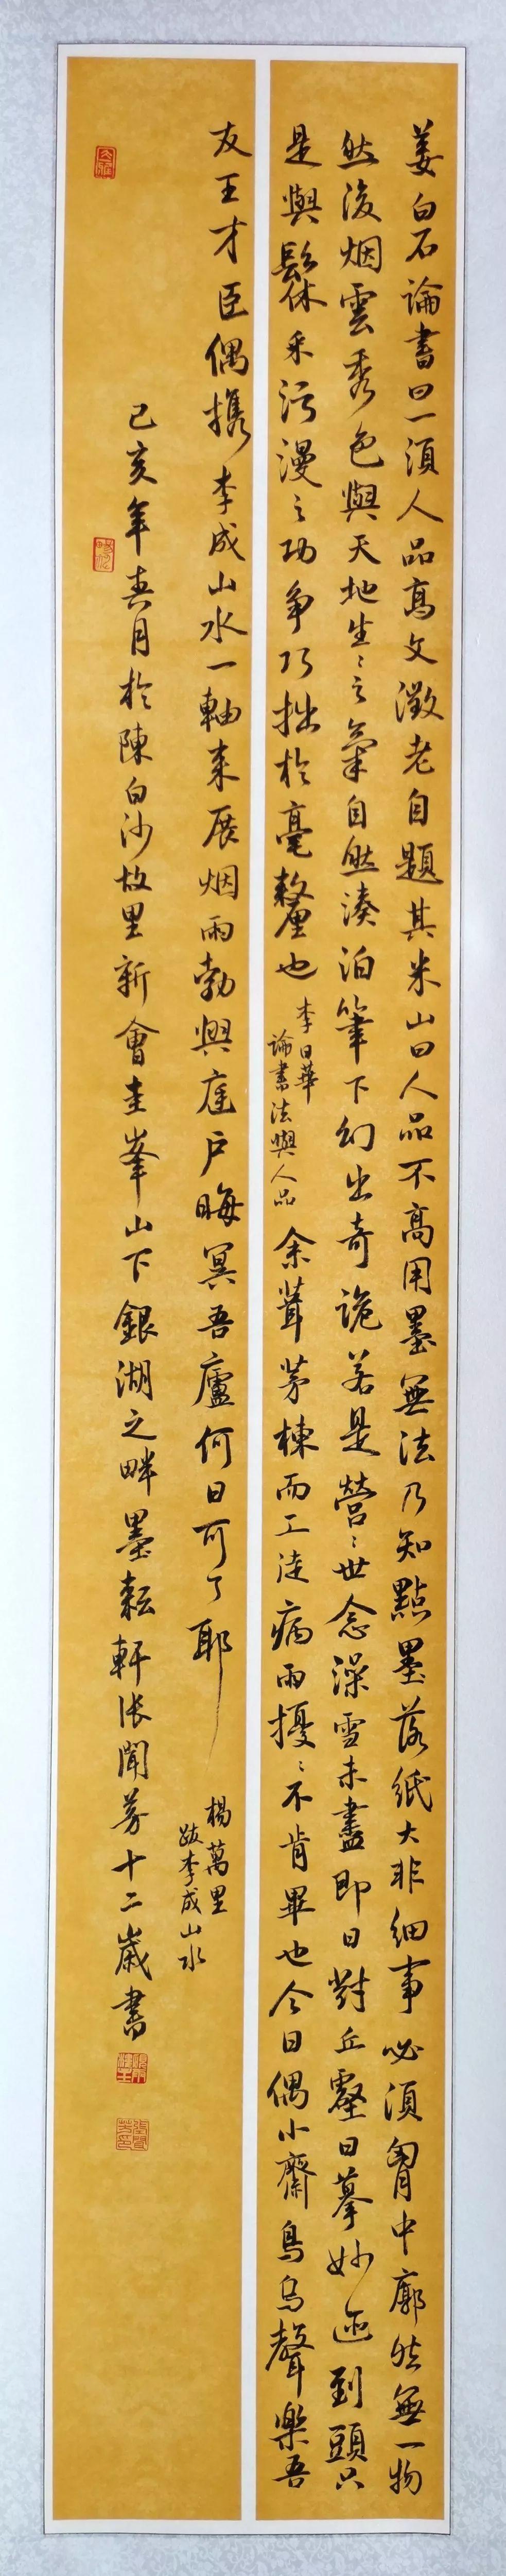 姜白石論書曰一須人品高文徵老自題其米山曰人品不高用墨無法乃知點墨落紙大非細事必須胷中廓然無一物
然後烟雲秀色與天地生〻之氣自然湊泊筆下幻出奇詭若是營〻世念澡雪未盡即日對丘壑日摹妙迹到頭只
是與髹采污漫之功爭巧拙於毫釐也
李日華
論書法與人品
余葺茅棟而工徒病雨擾〻不肯畢也今日偶小齋鳥烏聲樂吾
友王才臣偶携李成山水一軸来展烟雨勃興庭户晦冥吾廬何日可了耶
楊萬里
跋李成山水
己亥年春月於陳白沙故里新會圭峯山下銀湖之畔墨耘軒張聞芳十二歲書